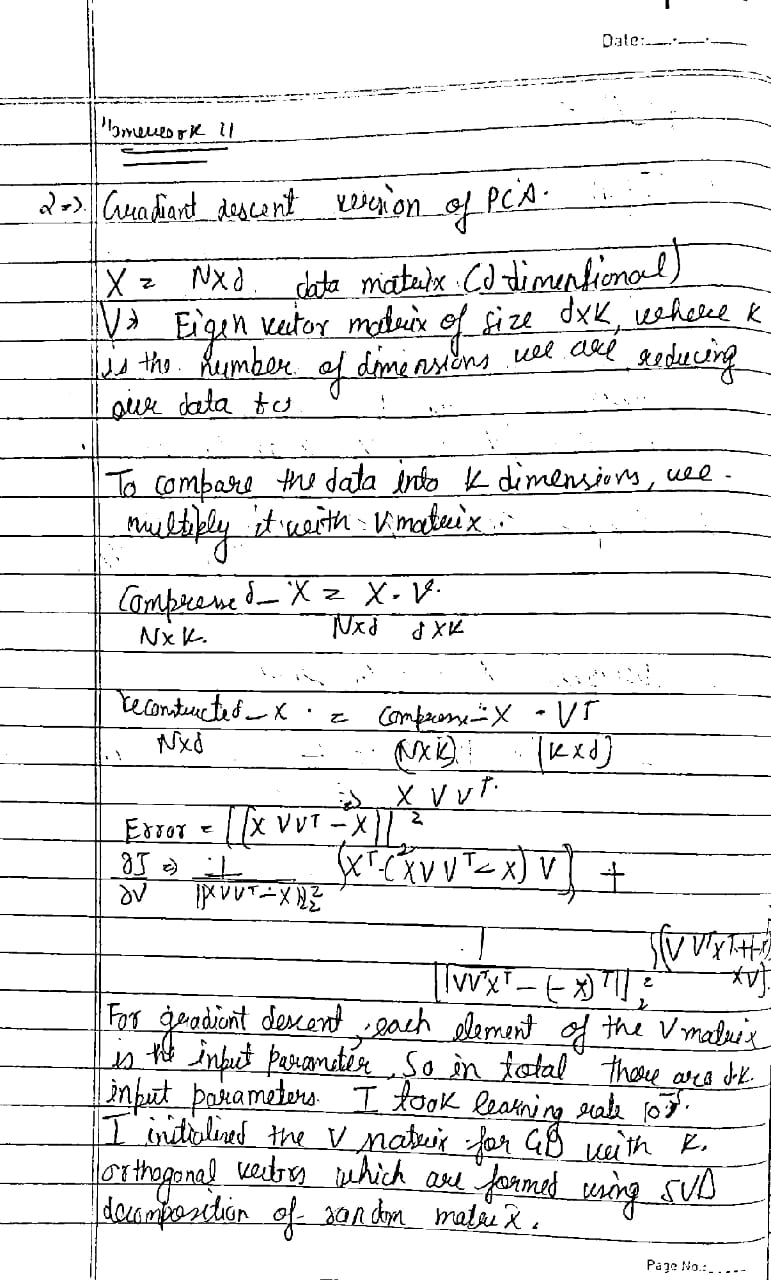 Date:
Homework 11
2=) Gradiant descent version of PCA.
X = Nxd data matrix (d dimentional)
V → Eigen vector matrix of size dxK, where K
is the number of dimensions we are reducing
our data to
To compare the data into K dimensions, we
multiply it with V matrix.
Compressed_X = X. V.
NxK. Nxd dxK
reconstructed_X = Compress_X . VT
Nxd (NxK) (Kxd)
⇒ X V VT.
Error = ||X VVT - X||²
∂J ⇒ 1 (XT. (XVVT - X) V] +
∂V ||XVVT - X||²₂
1 ((V VTXT
||VVTXT - (-X)T||²₂ XV].
For gradiant descent, each element of the V matrix
is the input parameter, So in total there are d.K.
input parameters. I took learning rate
I initialized the V matrix for GD with K.
orthogonal vectors which are formed using SVD
decomposition of random matrix.
Page No.: